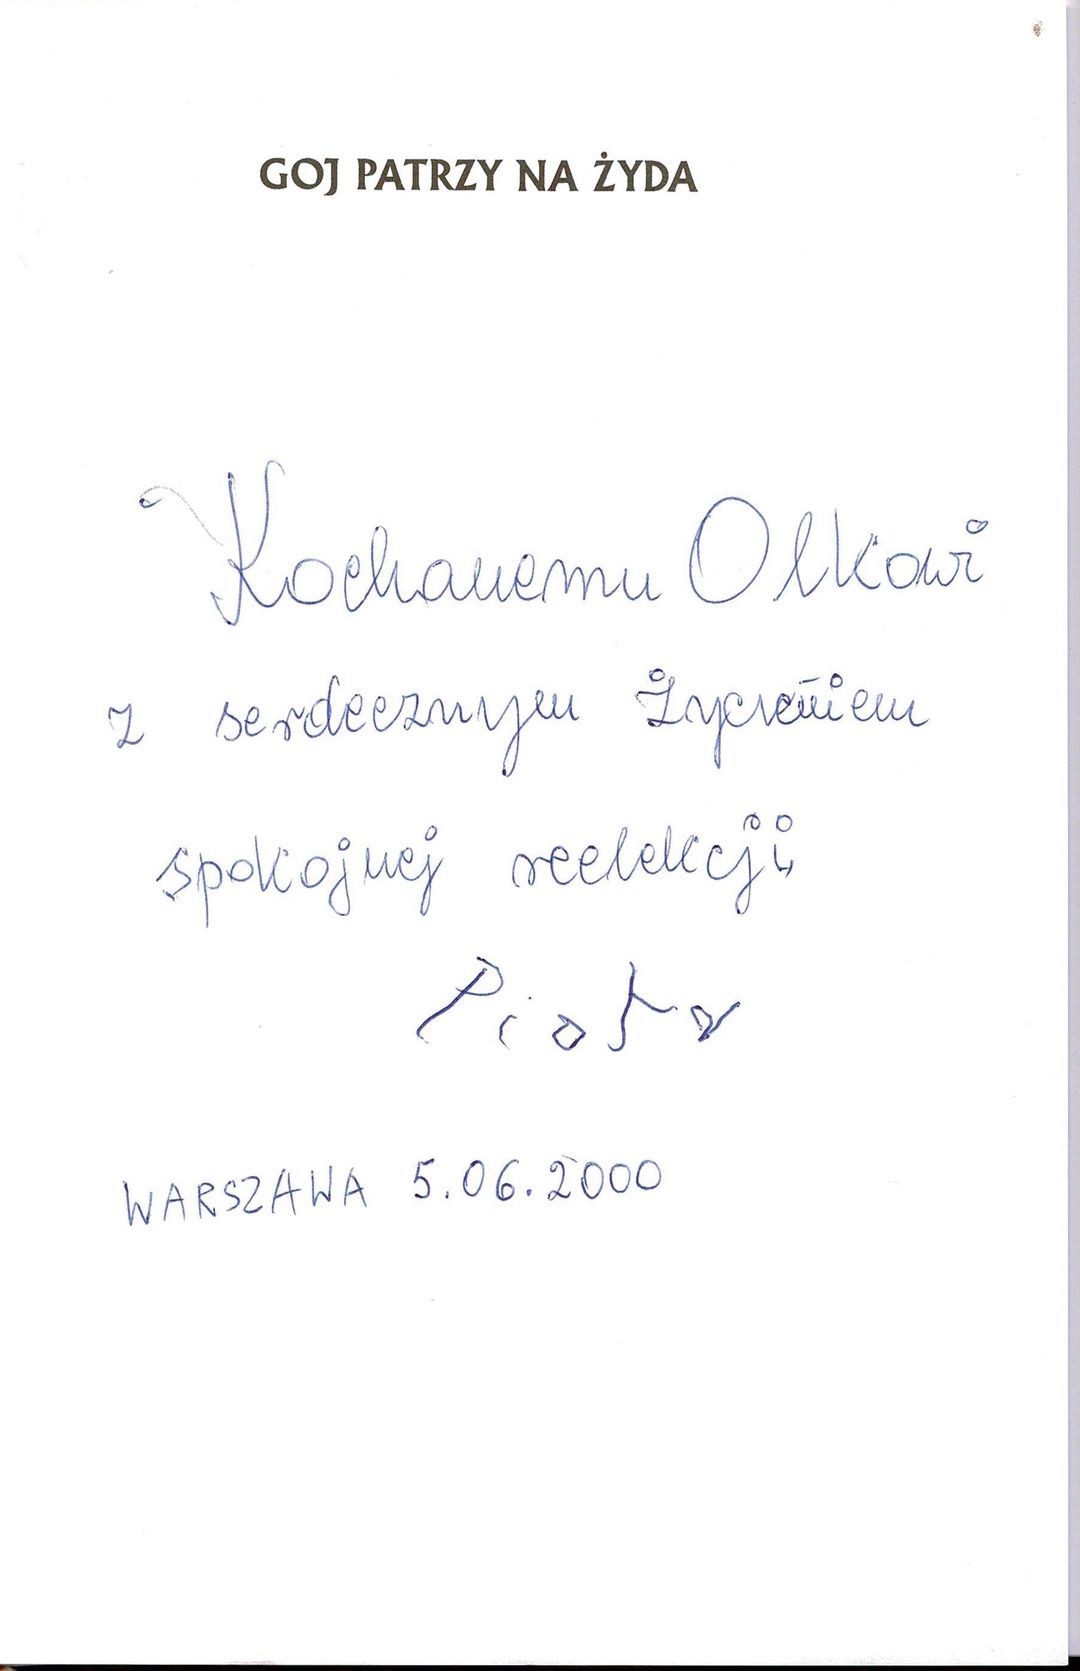 GOJ PATRZY NA ŻYDA
Kochanemu Olkowi
z serdecznym życzeniem
spokojnej reelekcji
Piotr
WARSZAWA 5.06.2000